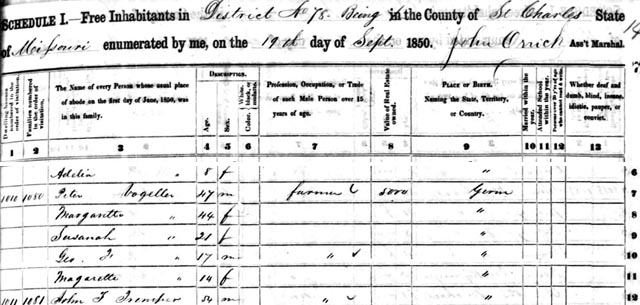 SCHEDULE I.—Free Inhabitants in District No 78. Being in the County of St. Charles State
of Missouri enumerated by me, on the 19th day of Sept. 1850. John Orrick Ass't Marshal. 14
Dwelling-houses numbered in the order of visitation.
Families numbered in the order of visitation.
The Name of every Person whose usual place of abode on the first day of June, 1850, was in this family.
DESCRIPTION.
Age.
Sex.
Color. White, black, or mulatto.
Profession, Occupation, or Trade of each Male Person over 15 years of age.
Value of Real Estate owned.
PLACE OF BIRTH. Naming the State, Territory, or Country.
Married within the year.
Attended School within the year.
Whether deaf and dumb, blind, insane, idiotic, pauper, or convict.
1 2 3 4 5 6 7 8 9 10 11 12 13
Adelia " 8 f " 6
1010 1080 Peter Vogeller 47 m farmer 5000 Germ 7
Margarette " 44 f " 8
Susanah " 21 f " 9
Geo. F " 17 m " " 10
Magarette " 14 f " 11
1011 1081 John F 54 m " " 12